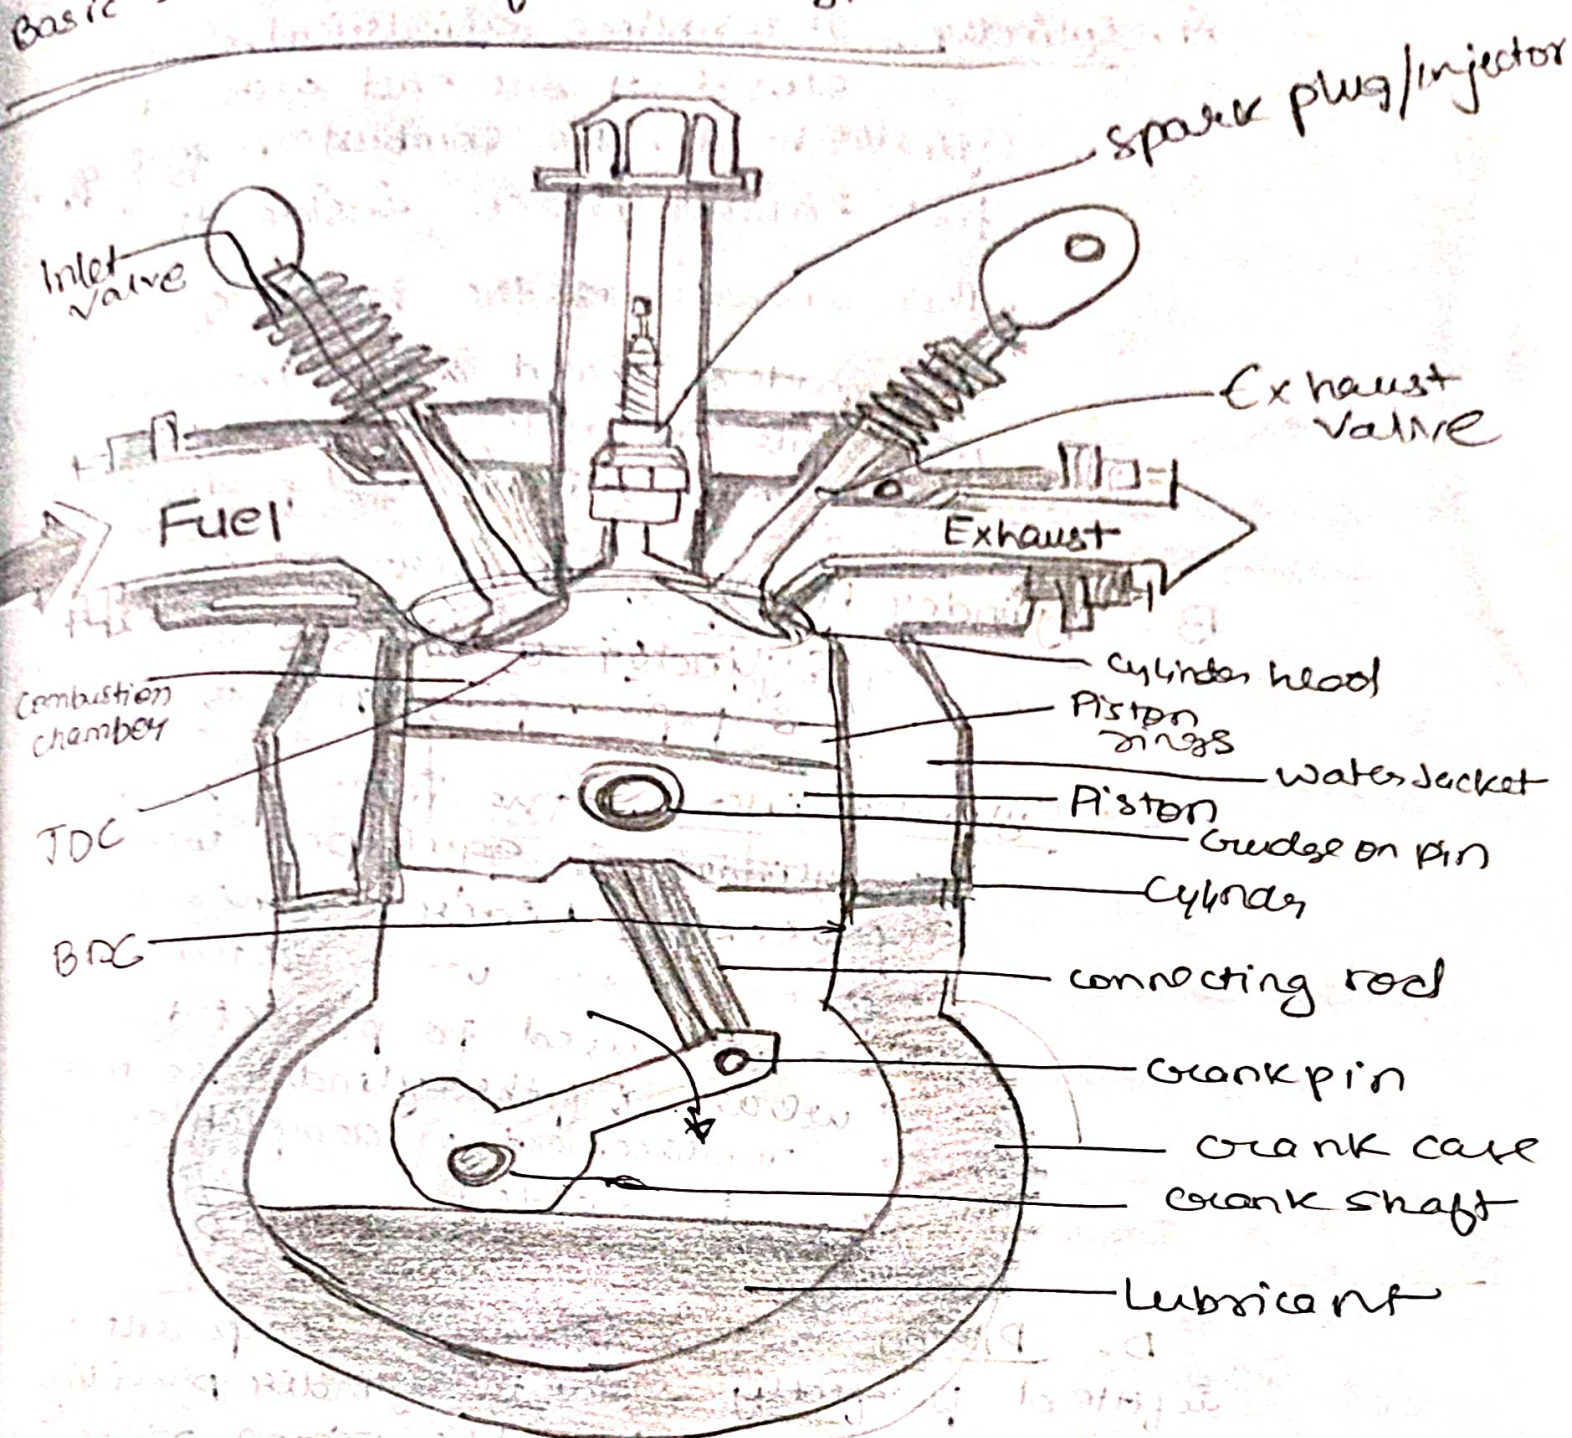 Basic
spark plug/injector
Inlet
valve
Exhaust
valve
Fuel
Exhaust
Combustion
chamber
cylinder head
Piston
rings
water Jacket
TDC
Piston
Gudgeon pin
Cylinder
BDC
connecting rod
crankpin
crank case
crank shaft
Lubricant